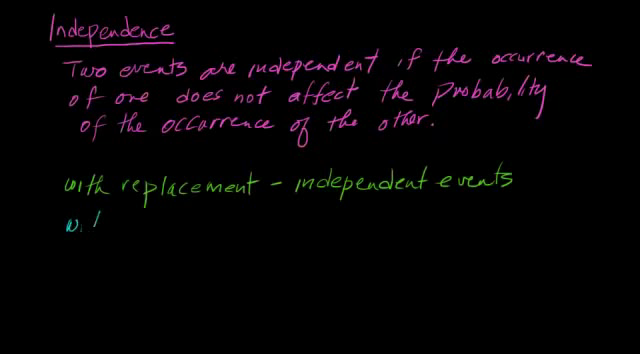 Independence
Two events are independent if the occurrence
of one does not affect the probability
of the occurrence of the other.
with replacement - independent events